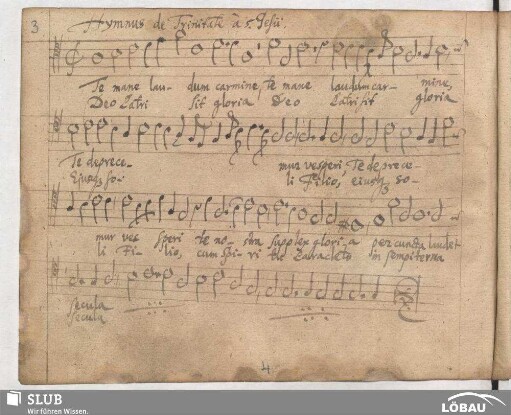 3 Hymnus de Trinitate à 5. Gesü.
Te mane lau- dum carmine, te mane laudum car- mine,
Deo Patri sit gloria Deo Patri sit gloria
Te deprece- mur vesperi, Te deprece-
Ejusq3 so- li Filio, ejusq3 so-
mur ves speri te no- stra supplex glori, a per cuncta laudet
li Fi- lio, cum Spi- ri tu Paracleto in sempiterna
secula
secula
4
SLUB
Wir führen Wissen.
LÖBAU